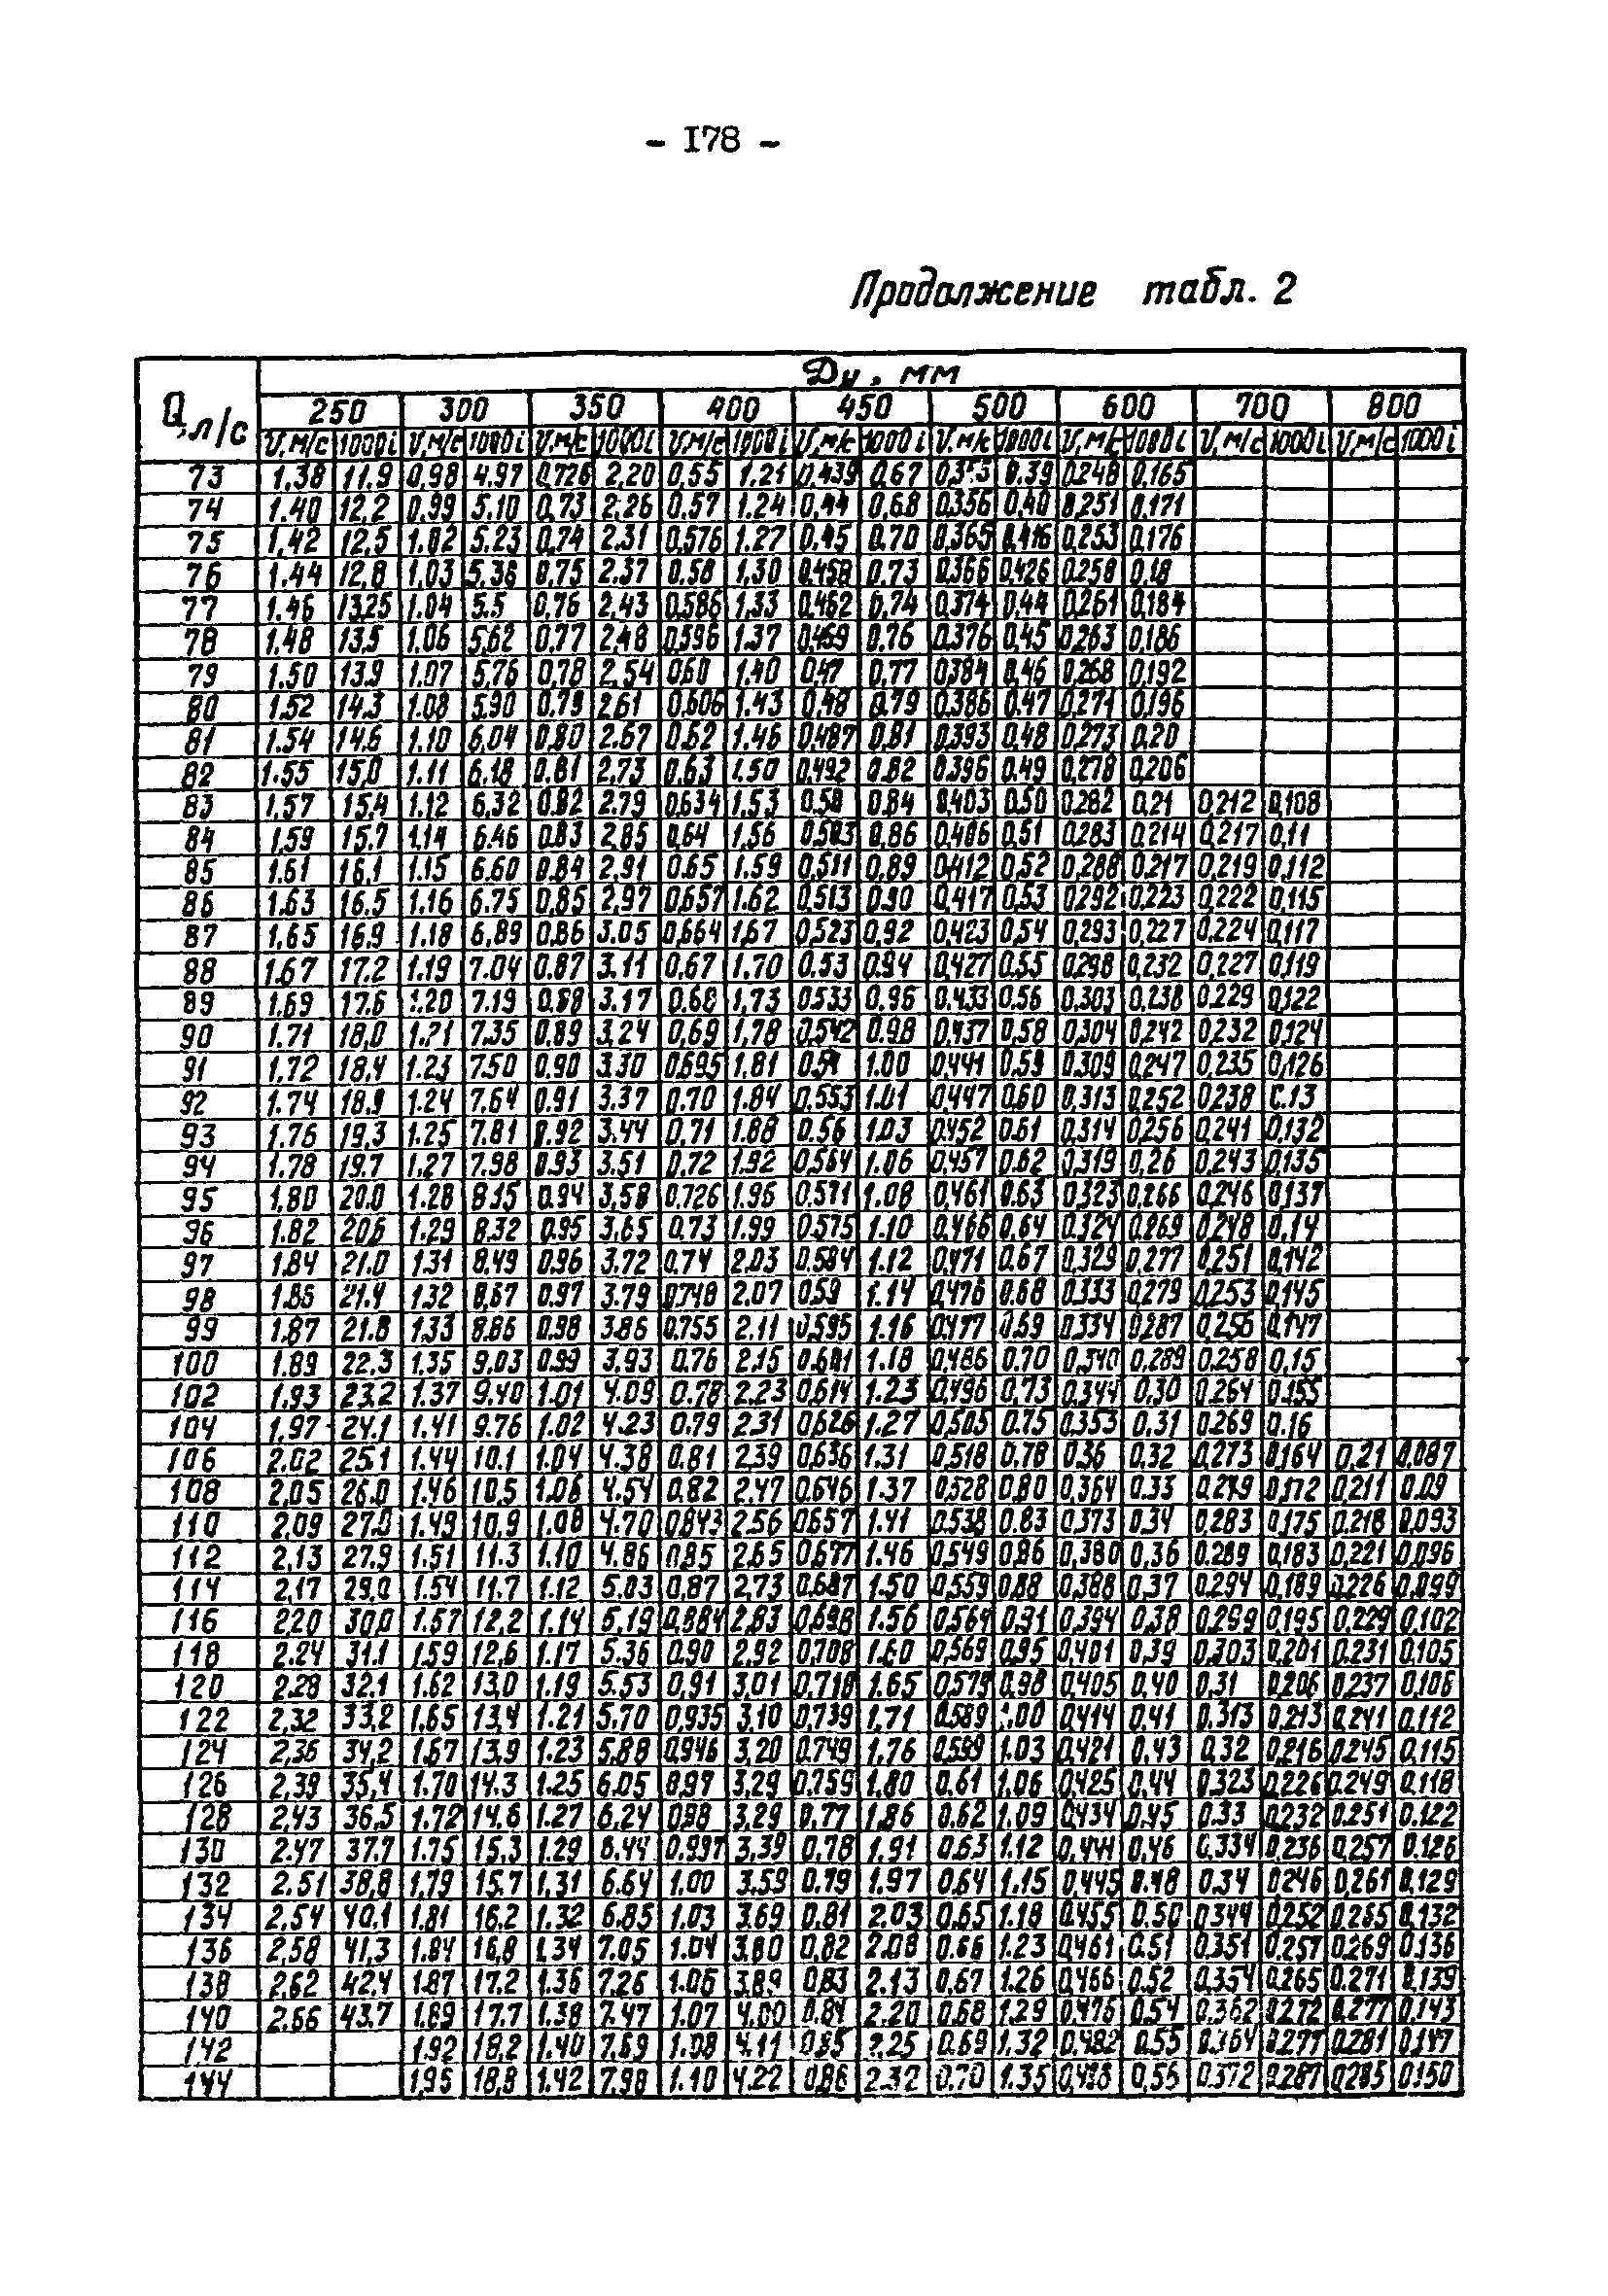 - I78 -
Продолжение табл. 2
Q, л/с Ду, мм
250 300 350 400 450 500 600 700 800
V,м/с 1000i V,м/с 1000i V,м/с 1000i V,м/с 1000i V,м/с 1000i V,м/с 1000i V,м/с 1000i V,м/с 1000i V,м/с 1000i
73 1.38 11.9 0,98 4.97 0,726 2,20 0,55 1.21 0,439 0,67 0,39 0,248 0,165
74 1.40 12,2 0.99 5.10 0,73 2.26 0.57 1.24 0,44 0,68 0,356 0,40 0,251 0,171
75 1,42 12,5 1.02 5.23 0,74 2.31 0,576 1.27 0,45 0.70 0,365 0,416 0,253 0,176
76 1.44 12,8 1,03 5.36 0,75 2.37 0.58 1,30 0,458 0.73 0,366 0,426 0.258 0,18
77 1.46 13,25 1.04 5.5 0,76 2.43 0,586 1,33 0,462 0,74 0,374 0,44 0,261 0,184
78 1,48 13,5 1.06 5,62 0,77 2,48 0,596 1.37 0,469 0.76 0,376 0,45 0,263 0,186
79 1.50 13.9 1.07 5,76 0,78 2,54 0,60 1,40 0,47 0,77 0,384 0,46 0,268 0,192
80 1,52 14.3 1.08 5.90 0,79 2,61 0,606 1.43 0,48 0,79 0,386 0,47 0,271 0,196
81 1.54 14,6 1,10 6,04 0,80 2.67 0,62 1.46 0,487 0,81 0,393 0,48 0,273 0,20
82 1.55 15,0 1.11 6.18 0,81 2,73 0,63 1.50 0,492 0,82 0,396 0,49 0,278 0,206
83 1,57 15,4 1.12 6,32 0,82 2.79 0,634 1,53 0,50 0,84 0,403 0,50 0,282 0,21 0,212 0,108
84 1,59 15.7 1.14 6.46 0,83 2,85 0,64 1,56 0,503 0,86 0,406 0,51 0,283 0,214 0,217 0,11
85 1.61 16.1 1.15 6.60 0.84 2,91 0.65 1.59 0,511 0,89 0,412 0,52 0,288 0,217 0,219 0,112
86 1.63 16.5 1.16 6.75 0,85 2,97 0,657 1.62 0,513 0,90 0,417 0,53 0,292 0,223 0,222 0,115
87 1,65 16,9 1.18 6,89 0,86 3.05 0,664 1,67 0,523 0,92 0,423 0,54 0,293 0,227 0,224 0,117
88 1.67 17.2 1.19 7.04 0,87 3,11 0,67 1.70 0.53 0.94 0,427 0,55 0,298 0,232 0,227 0,119
89 1.69 17.6 1.20 7.19 0,88 3.17 0,68 1,73 0.533 0.96 0.433 0.56 0,303 0,238 0.229 0,122
90 1.71 18,0 1.21 7.35 0,89 3,24 0,69 1,78 0,542 0.98 0,437 0,58 0,304 0,242 0,232 0,124
91 1,72 18,4 1.23 7.50 0.90 3.30 0,695 1.81 1.00 0,441 0,59 0,309 0,247 0,235 0,126
92 1.74 18.9 1.24 7,64 0,91 3,37 0.70 1.84 0,553 1.01 0,447 0,60 0,313 0,252 0,238 0.13
93 1.76 19,3 1.25 7.81 0.92 3,44 0,71 1.88 0.56 1.03 0,452 0.61 0,314 0,256 0,241 0,132
94 1.78 19.7 1,27 7.98 0.93 3.51 0,72 1.92 0,564 1.06 0,457 0.62 0,319 0,26 0,243 0,135
95 1,80 20.0 1.28 8.15 0.94 3,58 0.726 1.96 0.571 1.08 0,461 0,63 0,323 0,266 0,246 0,137
96 1.82 20,6 1.29 8.32 0.95 3,65 0,73 1,99 0.575 1.10 0,466 0,64 0,324 0,269 0,248 0,14
97 1,84 21.0 1.31 8,49 0.96 3.72 0,74 2.03 0.584 1.12 0,471 0.67 0,329 0,277 0,251 0,142
98 1.86 21.4 1.32 8,67 0.97 3.79 0,748 2.07 0,59 1.14 0,476 0.68 0,333 0,279 0,253 0,145
99 1.87 21.8 1,33 8.86 0.98 3.86 0,755 2.11 0,595 1.16 0,477 0.69 0,334 0,287 0,256 0,147
100 1.89 22.3 1,35 9,03 0.99 3,93 0.76 2,15 0.601 1.18 0,486 0.70 0,340 0,289 0.258 0,15
102 1.93 23,2 1.37 9.40 1.01 4.09 0.78 2,23 0,614 1.23 0,496 0,73 0,344 0,30 0.264 0.155
104 1,97 24,1 1.41 9.76 1.02 4.23 0.79 2,31 0,626 1.27 0,505 0.75 0,353 0,31 0.269 0.16
106 2.02 25.1 1.44 10.1 1.04 4.38 0.81 2,39 0,636 1.31 0,518 0.78 0,36 0,32 0,273 0,164 0,21 0,087
108 2,05 26.0 1.46 10,5 1.06 4.54 0,82 2.47 0.646 1.37 0,528 0,80 0,364 0.33 0,279 0,172 0,211 0.09
110 2,09 27.0 1.49 10,9 1.08 4.70 0,843 2.56 0,657 1.41 0,538 0.83 0,373 0,34 0,283 0,175 0,218 0,093
112 2,13 27.9 1.51 11.3 1.10 4.86 0,85 2,65 0,677 1.46 0,549 0,86 0,380 0,36 0.289 0,183 0,221 0,096
114 2,17 29.0 1.54 11.7 1.12 5.03 0,87 2,73 0.687 1.50 0,559 0,88 0,388 0,37 0.294 0,189 0,226 0,099
116 2,20 30,0 1.57 12,2 1.14 5,19 0,884 2,83 0,698 1.56 0,564 0,91 0,394 0,38 0,299 0,195 0,229 0,102
118 2.24 31.1 1,59 12,6 1.17 5.36 0.90 2,92 0,708 1.60 0,569 0,95 0,401 0,39 0,303 0,201 0,231 0,105
120 2,28 32.1 1.62 13,0 1.19 5.53 0,91 3,01 0.718 1.65 0,579 0,98 0,405 0,40 0,31 0,206 0,237 0,106
122 2,32 33,2 1,65 13,4 1.21 5.70 0,935 3,10 0,739 1,71 0.589 1.00 0,414 0,41 0,313 0,213 0,241 0,112
124 2,36 34,2 1.67 13.9 1.23 5.88 0,946 3,20 0.749 1,76 0,599 1.03 0,421 0,43 0,32 0,216 0,245 0,115
126 2,39 35,4 1.70 14.3 1.25 6.05 0,97 3,29 0,759 1.80 0,61 1,06 0,425 0,44 0,323 0,226 0,249 0,118
128 2,43 36,5 1.72 14.6 1.27 6,24 0,98 3,29 0,77 1,86 0,62 1.09 0,434 0,45 0.33 0,232 0.251 0,122
130 2.47 37.7 1.75 15,3 1.29 6.44 0.997 3,39 0,78 1,91 0,63 1.12 0,441 0,46 0,334 0,236 0,257 0.126
132 2.51 38,8 1,79 15.7 1,31 6.64 1.00 3.59 0.79 1.97 0,64 1.15 0,445 0,48 0,34 0,246 0,261 0,129
134 2,54 40,1 1,81 16,2 1.32 6.85 1.03 3.69 0,81 2.03 0,65 1.18 0.455 0.50 0,344 0,252 0,265 0,132
136 2,58 41,3 1.84 16,8 1,34 7.05 1.04 3,80 0,82 2.08 0.66 1.23 0,461 0.51 0,351 0,257 0,269 0,136
138 2,62 42,4 1.87 17.2 1.36 7,26 1.06 3,89 0,83 2.13 0,67 1.26 0,466 0.52 0,354 0,265 0,271 0,139
140 2.66 43.7 1.89 17.7 1.38 7.47 1.07 4.00 0.84 2.20 0,68 1.29 0,476 0,54 0,362 0,272 0,277 0,143
142 1.92 18,2 1.40 7.69 1.08 4.11 0,85 2.25 0.69 1.32 0,482 0.55 0.364 0.277 0,281 0,147
144 1,95 18,8 1.42 7.98 1.10 4.22 0,86 2.32 0.70 1.35 0,488 0,56 0.372 0.287 0,285 0.150